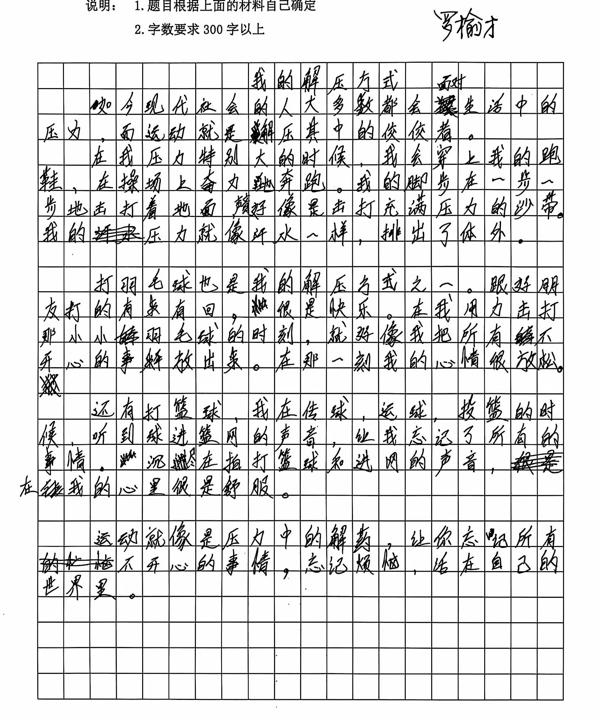 说明： 1.题目根据上面的材料自己确定
2.字数要求 300 字以上
罗榆才
我的解压方式
如今现代社会的人大多数都会面对生活中的
压力，而运动就是解压其中的佼佼者。
在我压力特别大的时候，我会穿上我的跑
鞋，在操场上奋力奔跑。我的脚步在一步一
步地击打着地面好像是击打充满压力的沙带。
我的压力就像汗水一样，排出了体外。
打羽毛球也是我的解压方式之一。跟好朋
友打的有来有回，很是快乐。在我用力击打
那小小羽毛球的时刻，就好像我把所有不
开心的事释放出来。在那一刻我的心情很放松。
还有打篮球，我在传球，运球，投篮的时
候，听到球进篮网的声音，让我忘记了所有的
事情。沉浸在拍打篮球和进网的声音，
在我的心里很是舒服。
运动就像是压力中的解药，让你忘记所有
不开心的事情，忘记烦恼，活在自己的
世界里。